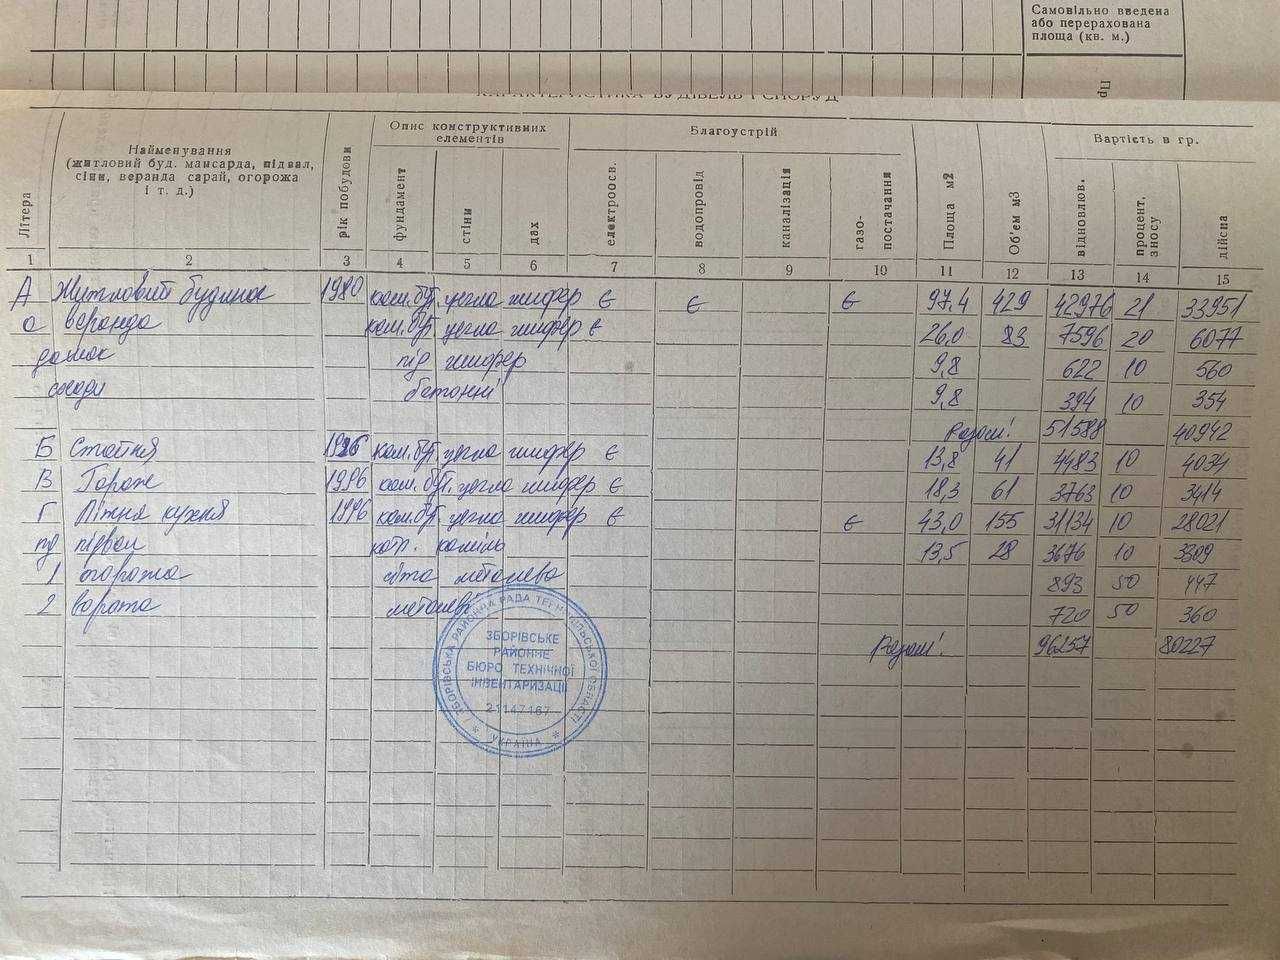 Самовільно введена
або перерахована
площа (кв. м.)
Пр
ХАРАКТЕРИСТИКА БУДІВЕЛЬ І СПОРУД
Літера
Найменування
(житловий буд. мансарда, підвал,
сіни, веранда сарай, огорожа
і т. д.)
рік побудови
Опис конструктивних
елементів
фундамент
стіни
дах
Благоустрій
електроосв.
водопровід
каналізація
газо-
постачання
Площа м2
Об'єм м3
Вартість в гр.
відновлюв.
процент.
зносу
дійсна
1 2 3 4 5 6 7 8 9 10 11 12 13 14 15
А Житловий будинок 1980 кам.бут. цегла шифер є є є 97,4 429 42976 21 33951
а веранда кам.бут. цегла шифер є 26,0 83 7596 20 6077
дашок під шифер 9,8 622 10 560
сходи бетонні 9,8 394 10 354
Разом: 51588 40942
Б Стайня кам.бут. цегла шифер є 13,8 41 4483 10 4034
В Гараж 1996 кам.бут. цегла шифер є 18,3 61 3763 10 3414
Г Літня кухня 1996 кам.бут. цегла шифер є є 43,0 155 31134 10 28021
пд підвал камінь 13,5 28 3676 10 3309
1 огорожа металева 893 50 447
2 ворота металеві 720 50 360
Разом: 96257 80227
ЗБОРІВСЬКА РАЙОННА РАДА ТЕРНОПІЛЬСЬКОЇ ОБЛАСТІ
ЗБОРІВСЬКЕ
РАЙОННЕ
БЮРО ТЕХНІЧНОЇ
ІНВЕНТАРИЗАЦІЇ
21147167
* УКРАЇНА *